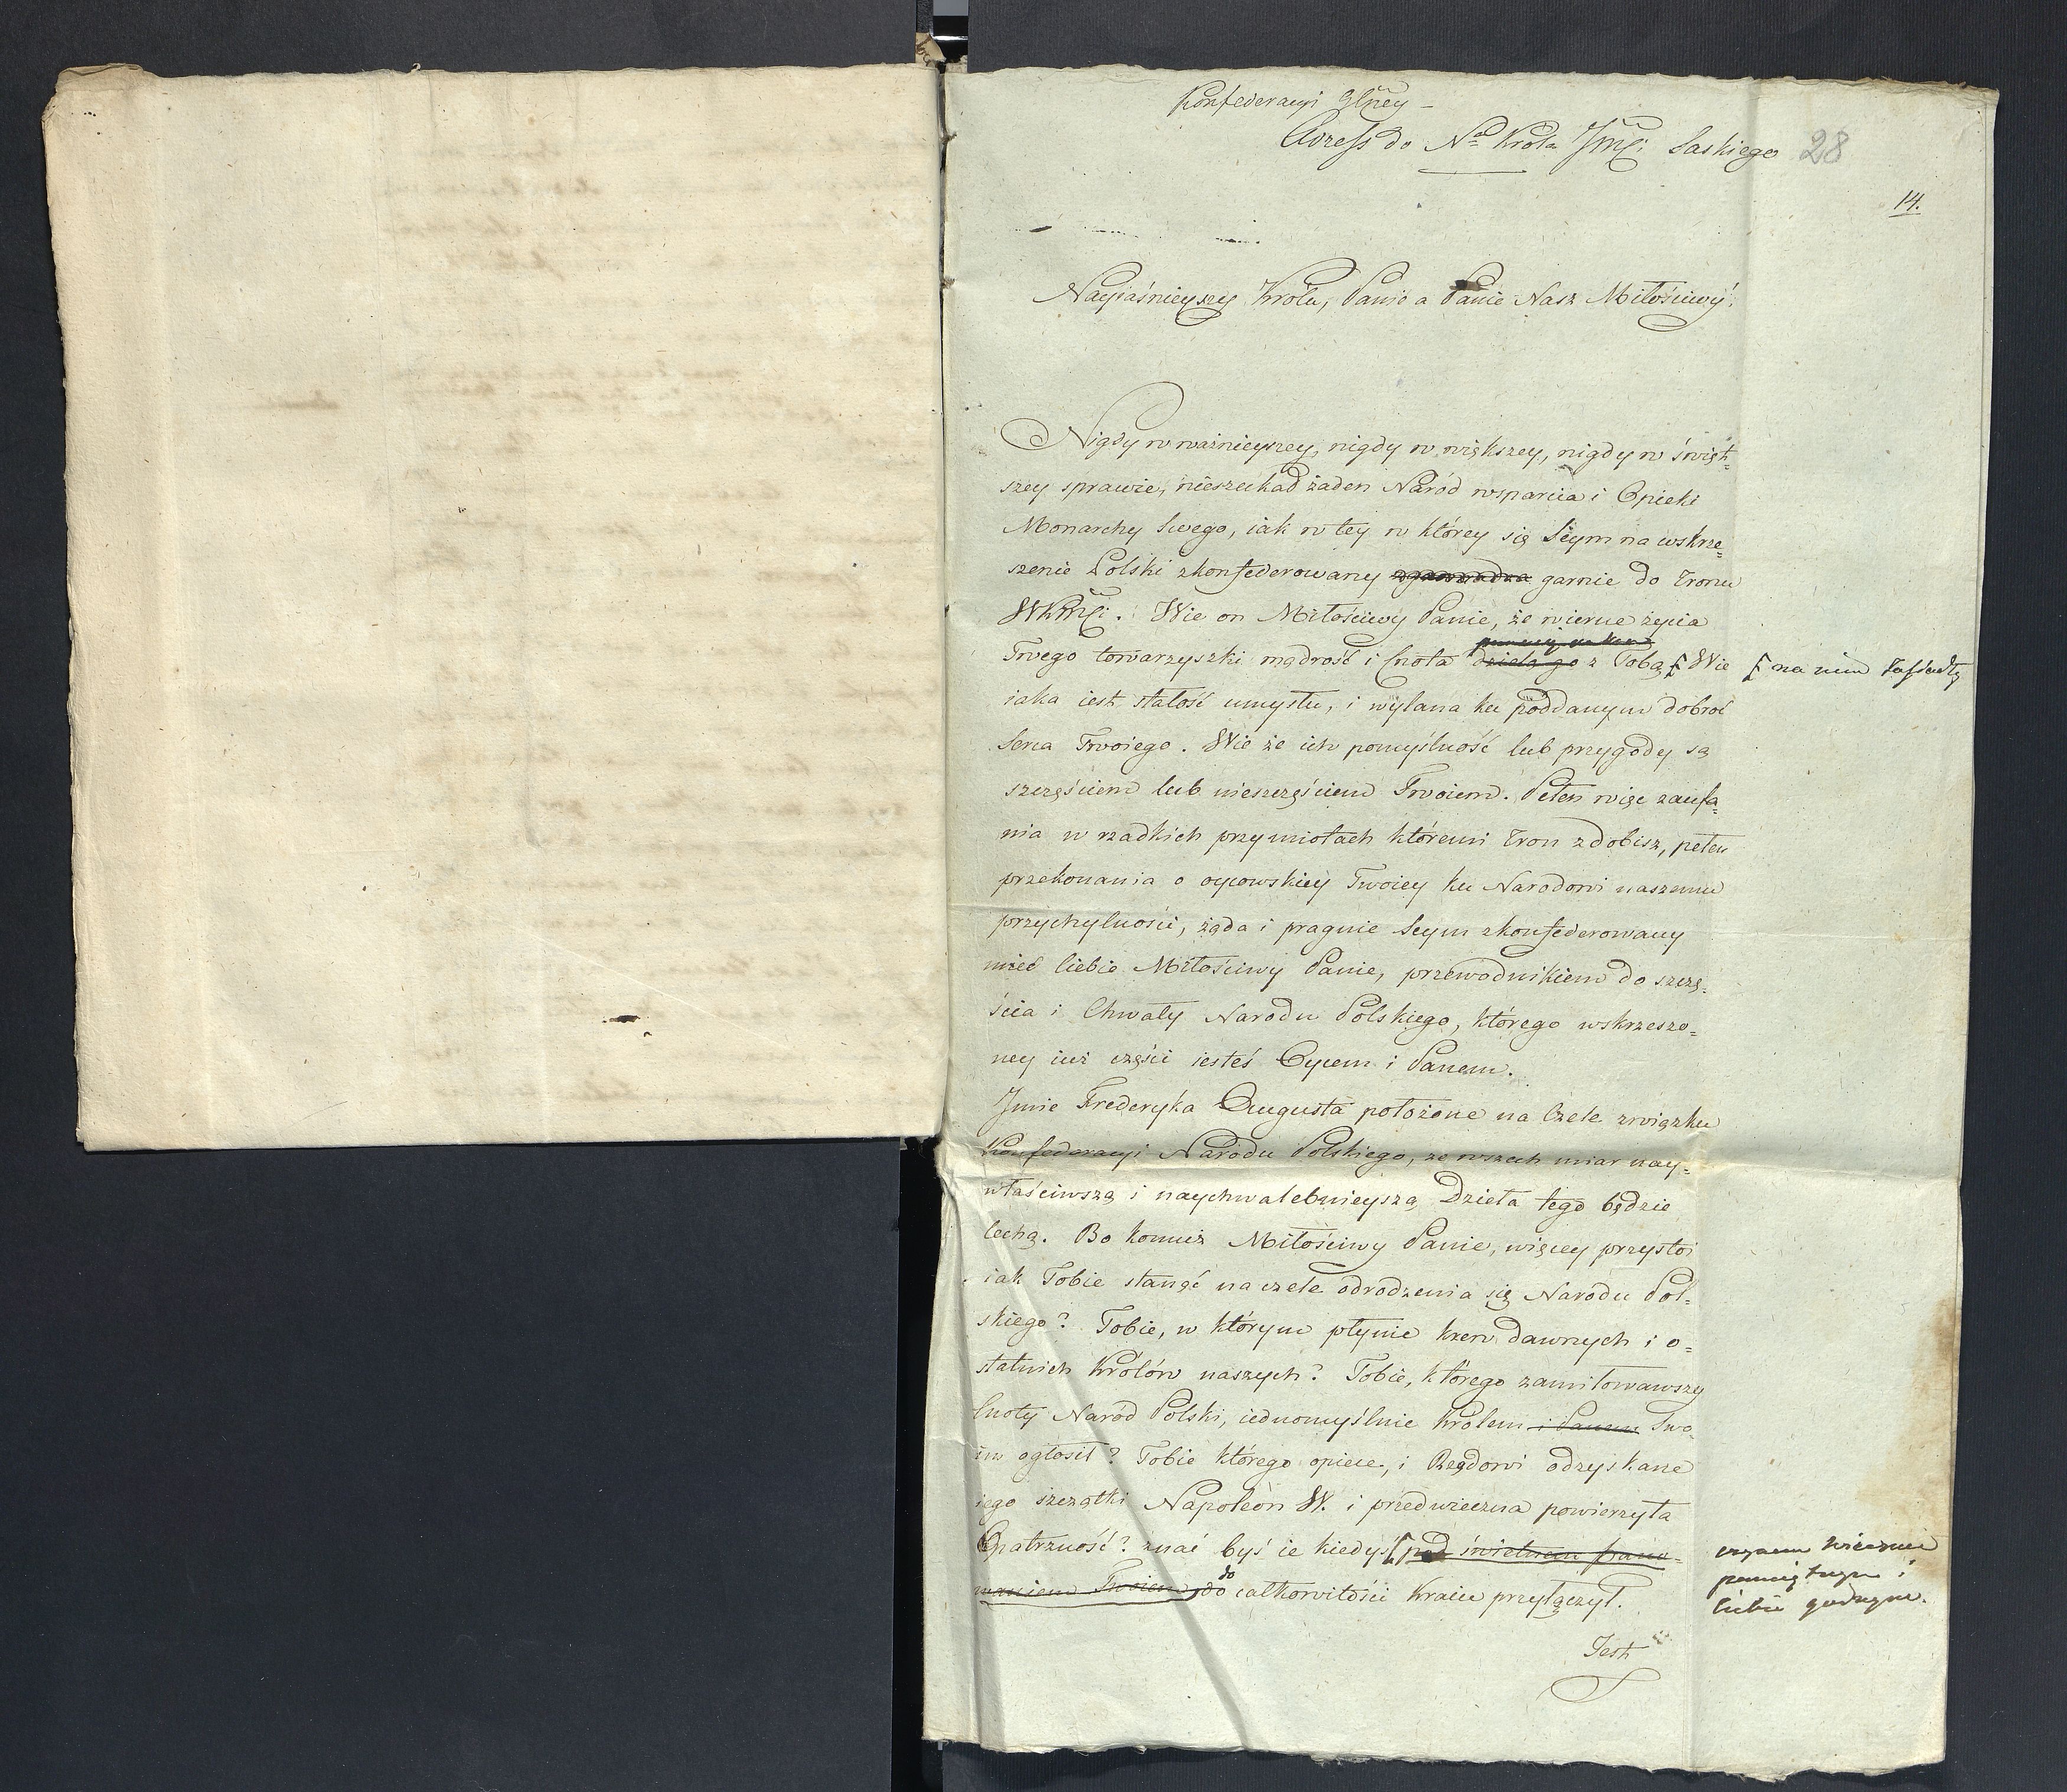 Konfederacyi Glney –
Adress do Nao Krola JMCi Saskiego 28
14.
Nayiaśnieyszy Krolu, Panie a Panie Nasz Miłościwy.
Nigdy w ważnieyszey, nigdy w większey, nigdy w święt=
szey sprawie, nieszukał żaden Naród wsparcia i Opieki
Monarchy Swego, iak w tey w którey się Seym na wskrze=
szenie Polski zkonfederowany garnie do Tronu
WKMCi. Wie on Miłościwy Panie, że wierne życia
Twego towarzyszki mądrość i Cnota dzielą go z Tobą Wie
na nim zasiadły
iaka iest stałość umysłu, i wylana ku poddanym dobroć
Serca Twoiego. Wie że ich pomyślność lub przygody są
szczęściem lub nieszczęściem Twoiem. Pełen więc zaufa=
nia w rzadkich przymiotach któremi Tron zdobisz, pełen
przekonania o oycowskiey Twoiey ku Narodowi naszemu
przychylności, żąda i pragnie Seym zkonfederowany
mieć Ciebie Miłościwy Panie, przewodnikiem do szczę=
ścia i Chwały Narodu Polskiego, którego wskrzeszo=
ney iuż części iesteś Oycem i Panem.
Jmie Frederyka Augusta położone na Czele związku
Konfederacyi Narodu Polskiego, ze wszech miar nay=
właściwszą i naychwalebnieyszą Dzieła tego będzie
Cechą. Bo komuż Miłościwy Panie, więcey przystoi
iak Tobie stanąć na czele odrodzenia się Narodu Pol=
skiego? Tobie, w którym płynie krew dawnych i o=
statnich Królów naszych? Tobie, którego zamiłowawszy
Cnoty Naród Polski, iednomyślnie Królem i Panem Swo=
im ogłosił? Tobie którego opiece, i Rządowi odzyskane
iego szczątki Napoleon W. i przedwieczna powierzyła
Opatrzność? znać byś ie kiedyś pod świetnem pano=
waniem Twoiem, do całkowitości Kraiu przyłączył.
czynem wiecznie
pamiętnym i
Ciebie godnym.
Jest